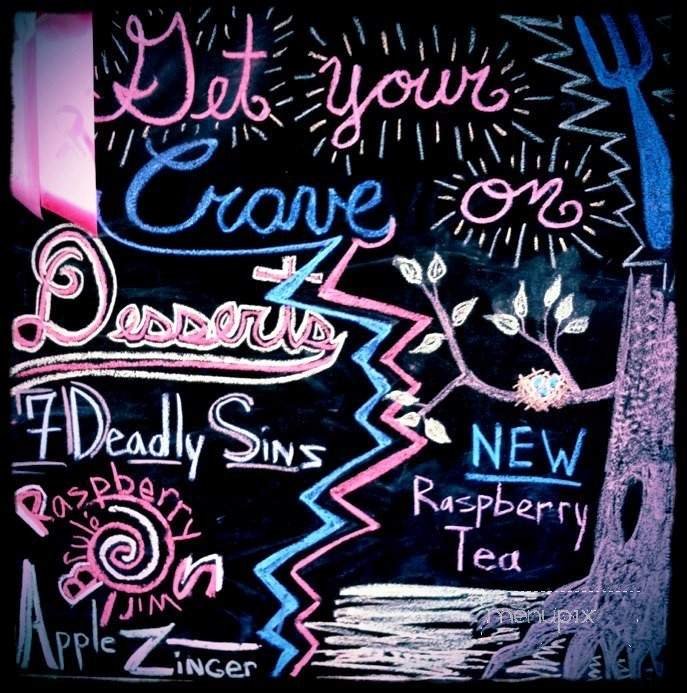 Get your
Crave on
Desserts
7 Deadly Sins
Raspberry
Brulé
Swirl
Apple Zinger
NEW
Raspberry
Tea
menupix